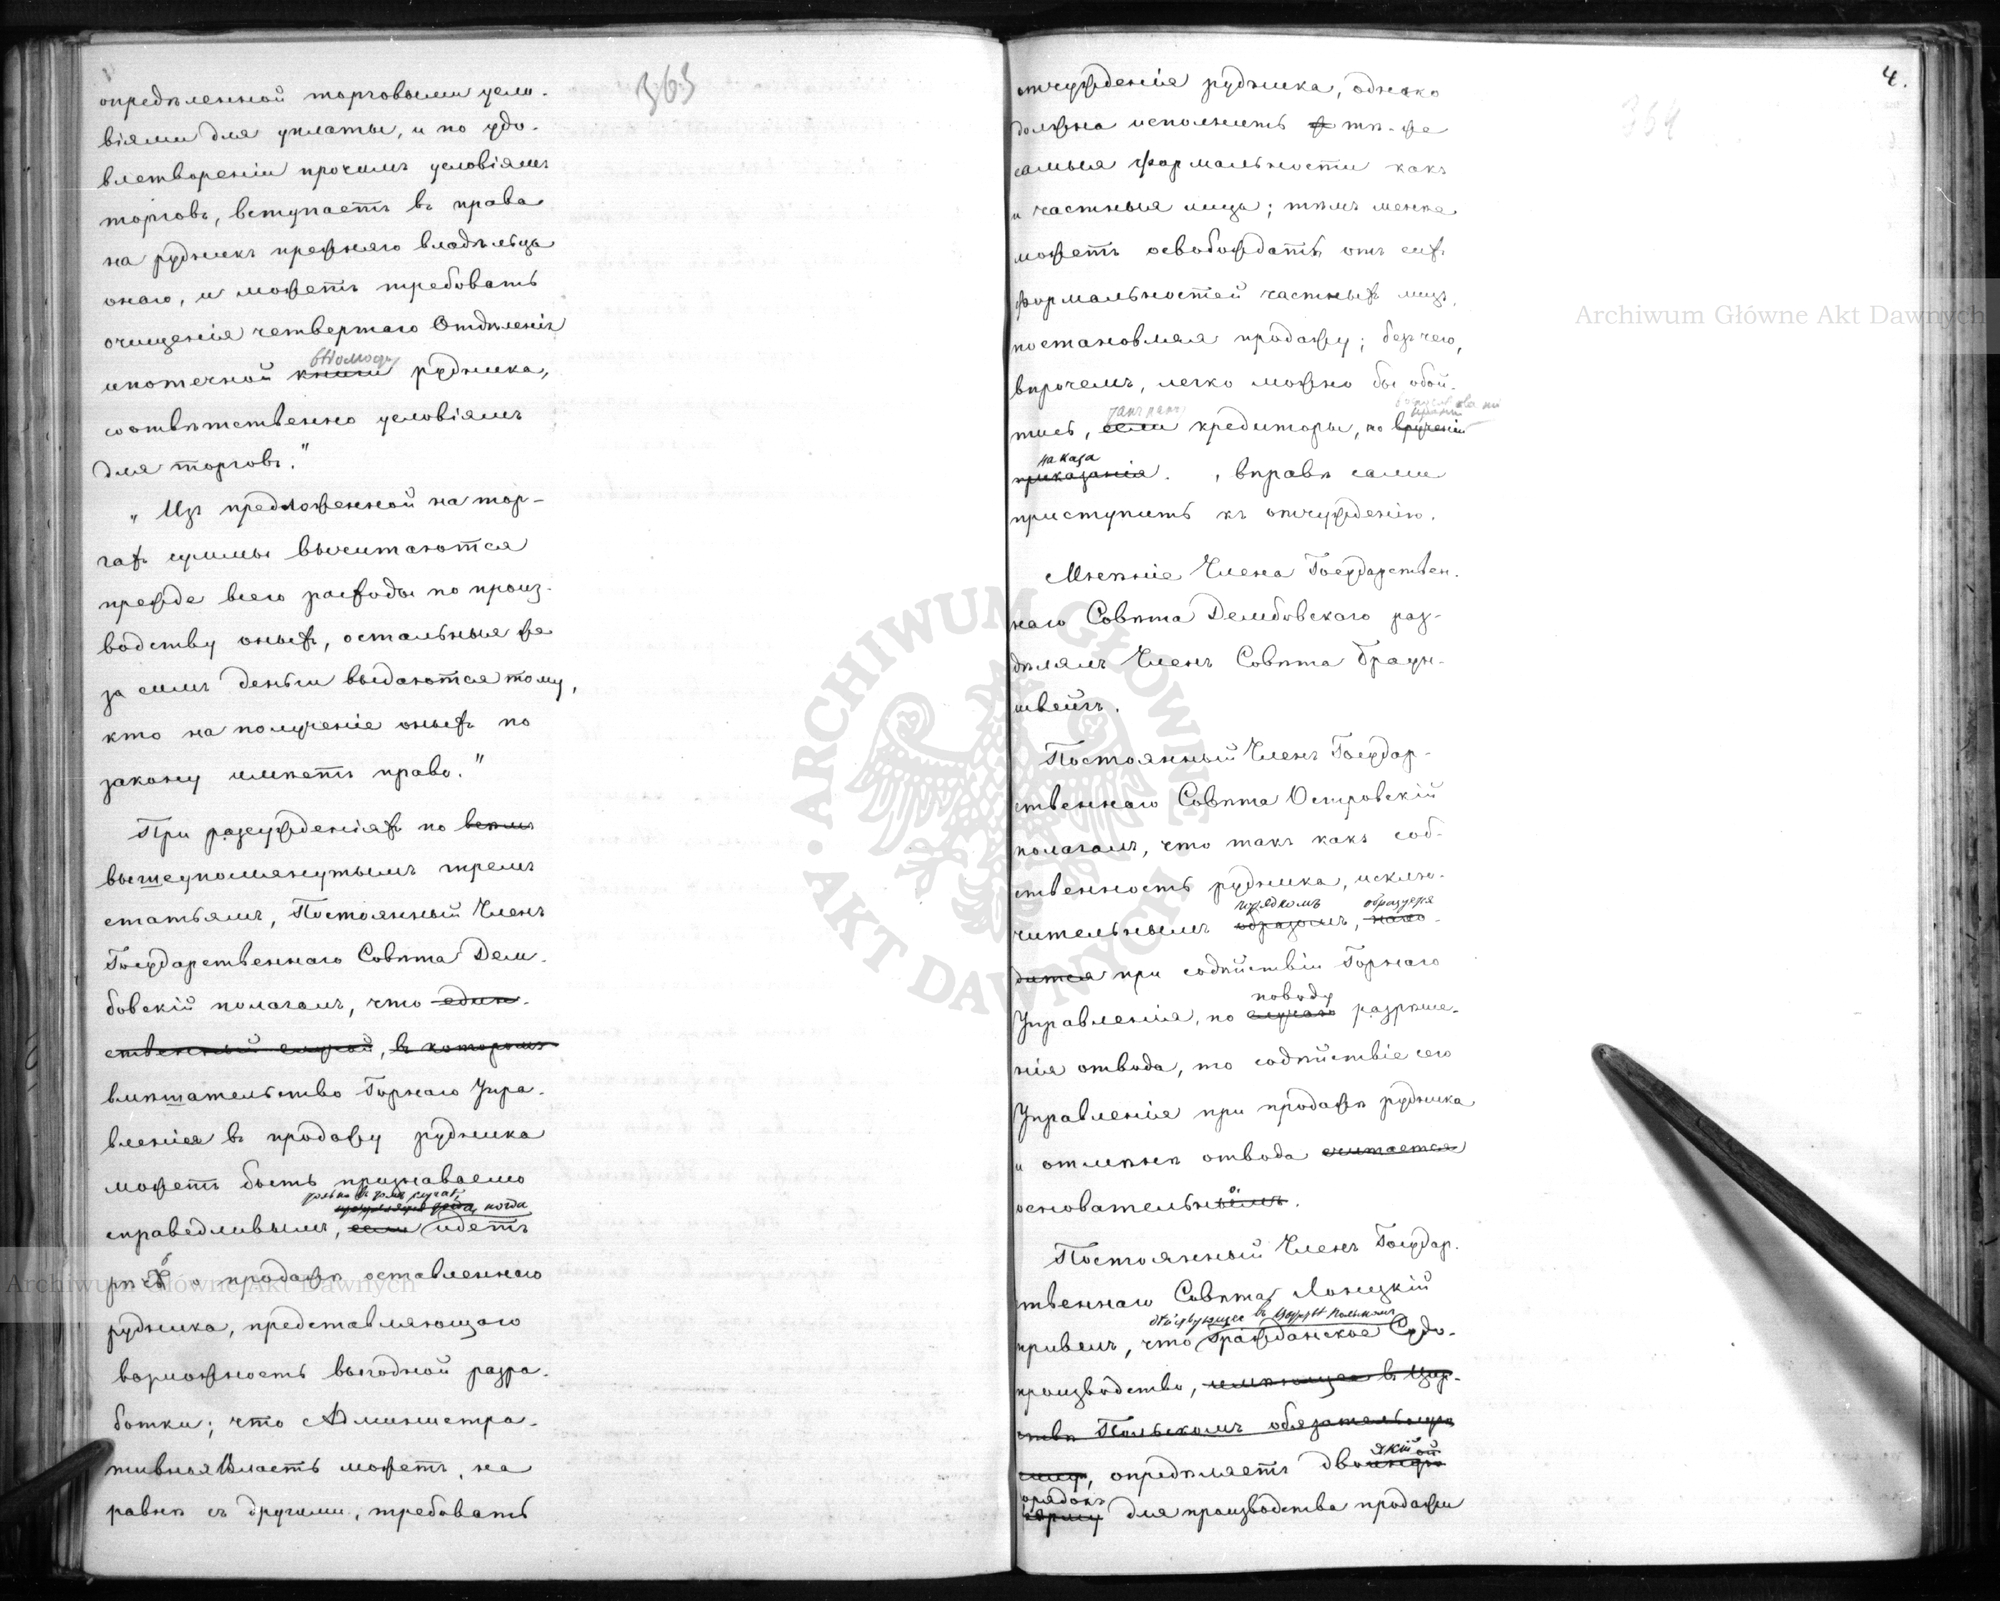 363
опредѣленной торговыми усло-
віями для уплаты, и по удо-
влетвореніи прочимъ условіямъ
торговъ, вступаетъ въ права
на рудникъ прежняго владѣльца
онаго, и можетъ требовать
очищенія четвертаго Отдѣленія
ипотечной книги рудника,
соотвѣтственно условіямъ
для торговъ."
„Изъ предложенной на тор-
гахъ суммы вычитаются
прежде всего расходы по произ-
водству оныхъ, остальныя же
за симъ деньги выдаются тому,
кто на полученіе оныхъ по
закону имѣетъ право."
При разсужденіяхъ по всѣмъ
вышеупомянутымъ тремъ
статьямъ, Постоянный Членъ
Государственнаго Совѣта Дем-
бовскій полагалъ, что един-
ственный случай, въ которомъ
вмѣшательство Горнаго Упра-
вленія въ продажу рудника
можетъ быть признаваемо
только въ томъ случаѣ, когда
справедливымъ, если идетъ
рѣчь о продажѣ оставленнаго
рудника, представляющаго
возможность выгодной разра-
ботки; что Администра-
тивная Власть можетъ, на
равнѣ съ другими, требовать
4.
364
отчужденія рудника, однако
должна исполнить тѣ-же
самыя формальности какъ
и частныя лица; тѣмъ менѣе
можетъ освобождать отъ сихъ
формальностей частныхъ лицъ,
постановляя продажу; безъ чего,
впрочемъ, легко можно бы обой-
такъ какъ
тись, если кредиторы, по врученіи
наказа
приказанія, вправѣ сами
приступить къ отчужденію.
Мнѣніе Члена Государствен-
наго Совѣта Дембовскаго раз-
дѣлялъ Членъ Совѣта Браун-
швейгъ.
Постоянный Членъ Государ-
ственнаго Совѣта Островскій
полагалъ, что такъ какъ соб-
ственность рудника, исклю-
порядкомъ образуется
чительнымъ образомъ, нахо-
дится при содѣйствіи Горнаго
поводу
Управленія, по случаю разрѣше-
нія отвода, то содѣйствіе сего
Управленія при продажѣ рудника
и отмѣнѣ отвода считается
основательнымъ.
Постоянный Членъ Государ-
ственнаго Совѣта Лонцкій
дѣйствующее въ Царствѣ Польскомъ
привелъ, что Гражданское Судо-
производство, имѣющее въ Цар-
ствѣ Польскомъ обязательную
силу, опредѣляетъ двоякій
порядокъ
форму для производства продажи
Archiwum Główne Akt Dawnych
Archiwum Główne Akt Dawnych
ARCHIWUM GŁÓWNE · AKT DAWNYCH ·